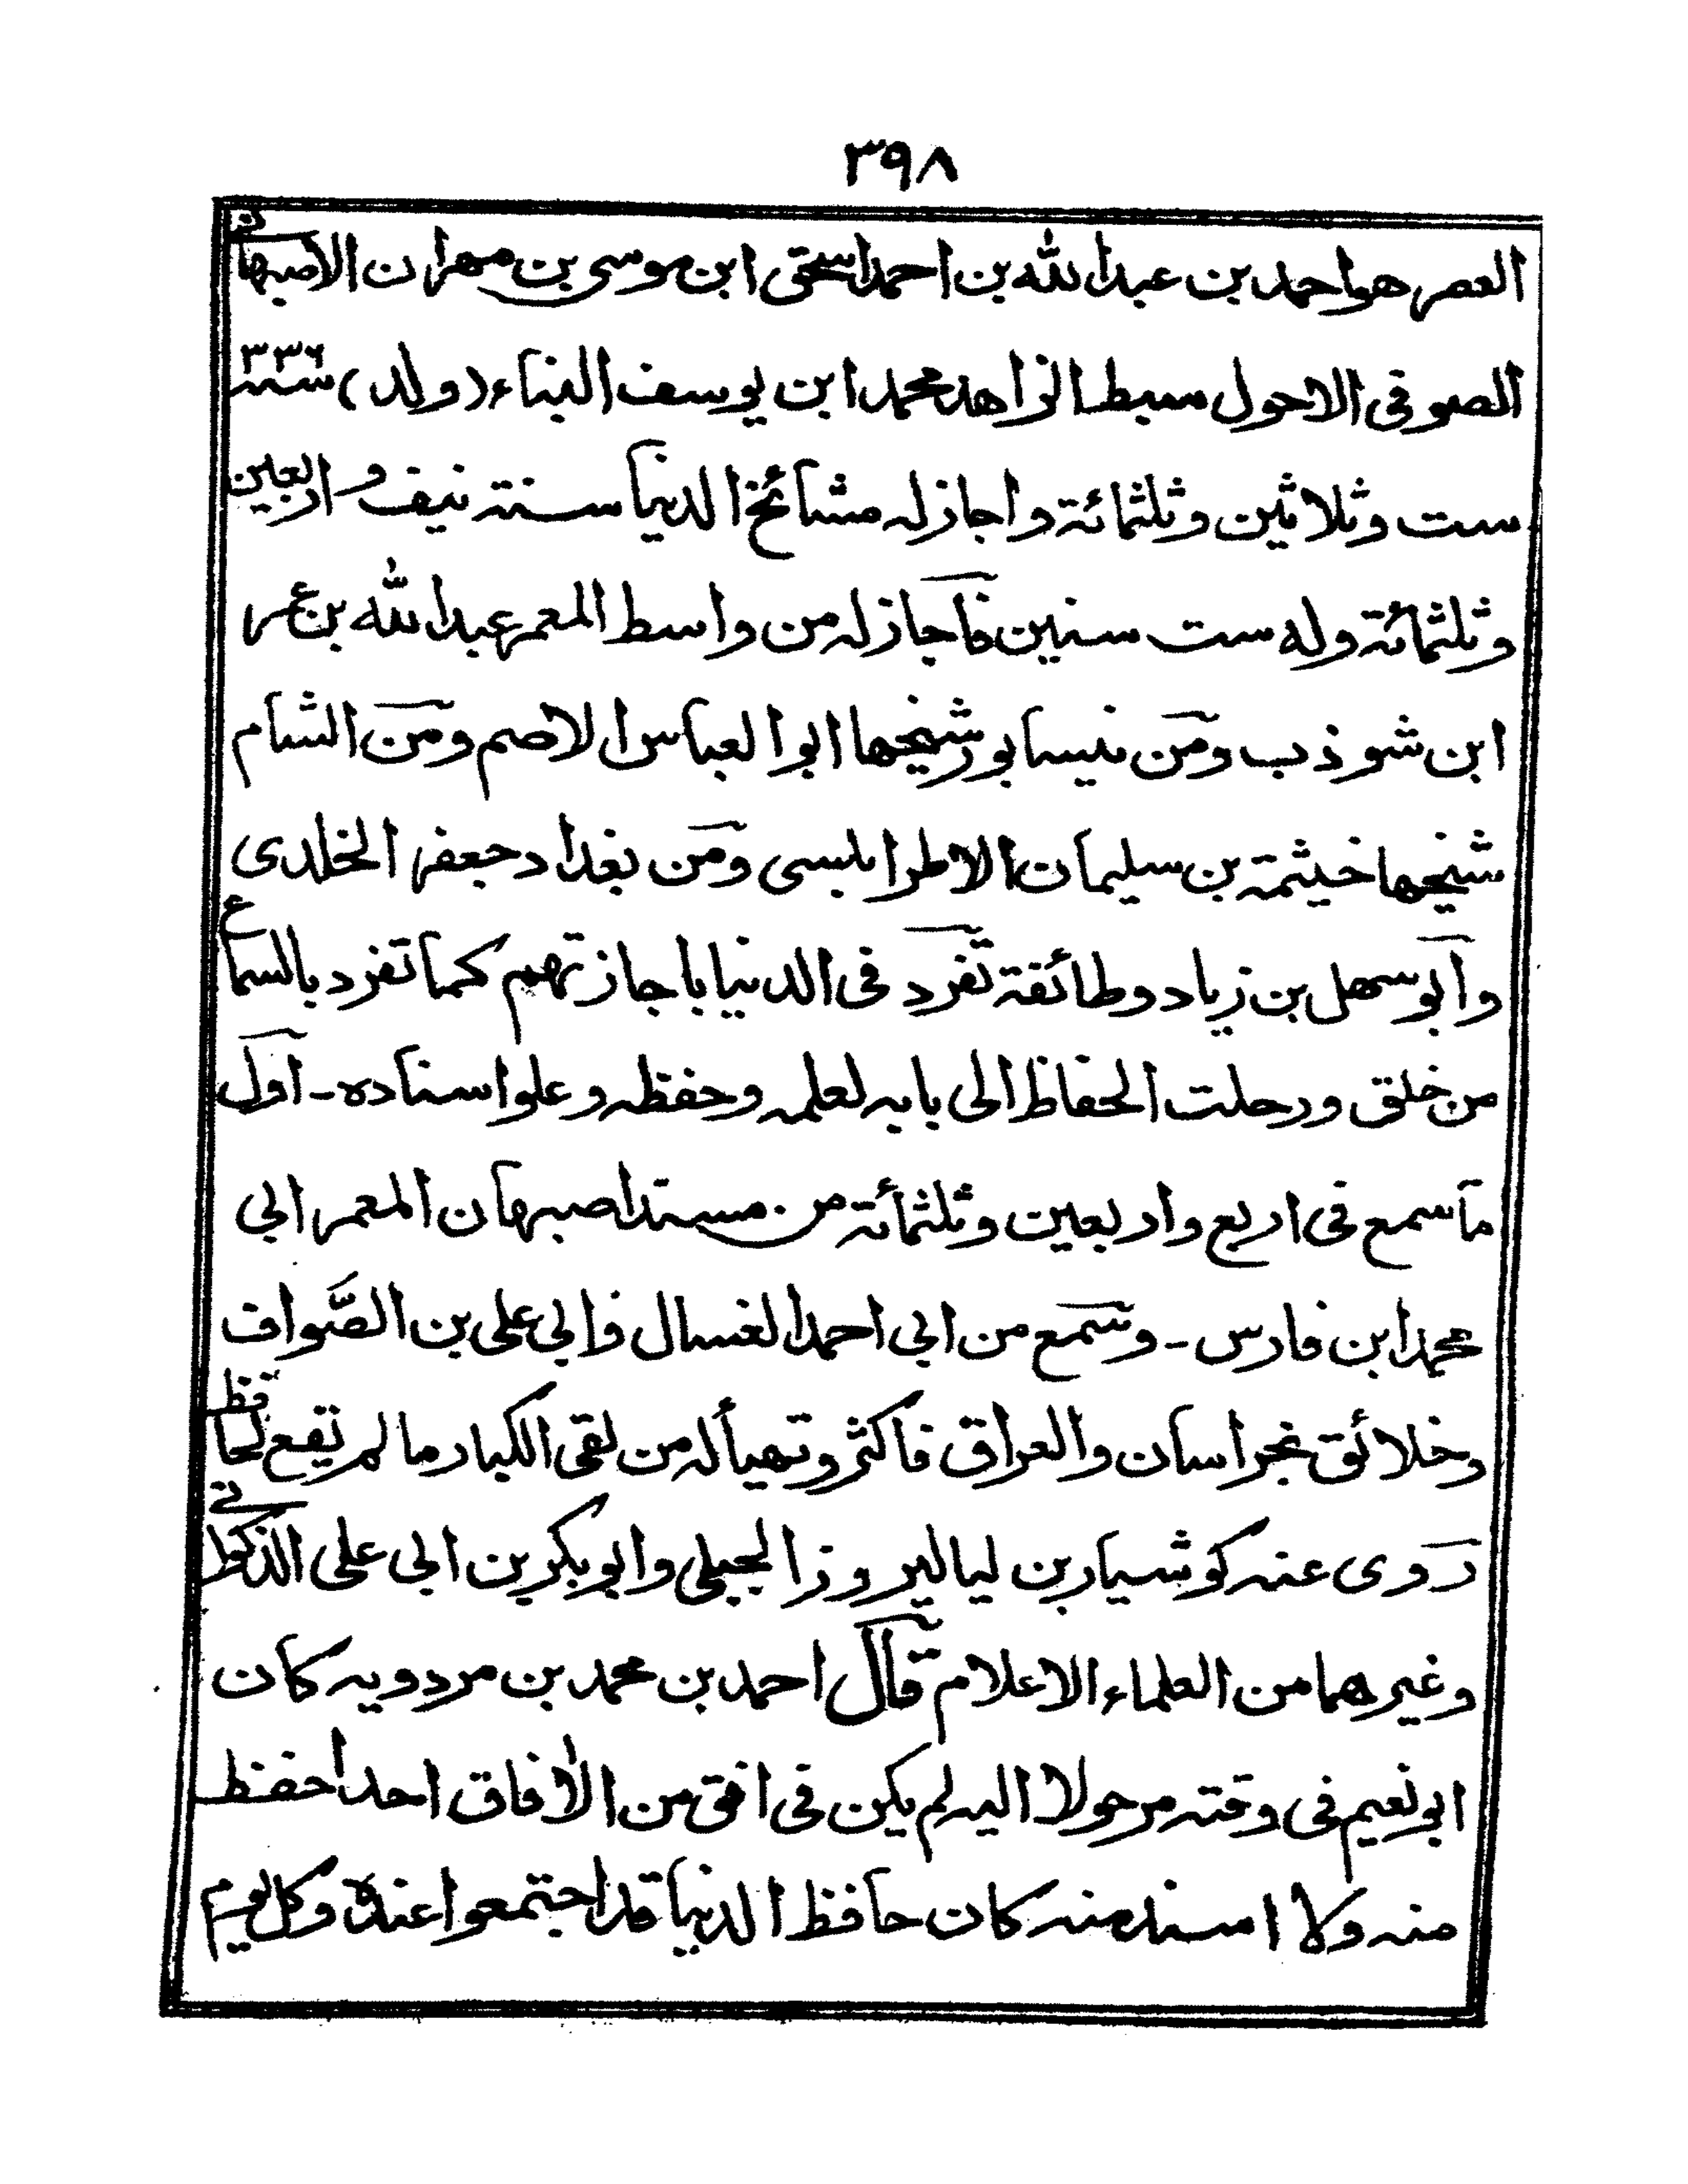 ٣٩٨
العصر هو احمد بن عبد الله بن احمد اسحق ابن موسى بن مهران الاصبهانی
الصوفی الاحول سبط الزاهد محمد ابن یوسف البناء (ولد) سنه ٣٣٦
ست وثلاثین وثلثمائة واجاز له مشائخ الدنیا سنة نیف واربعین
وثلثمائة وله ست سنین فاجاز له من واسط المعمر عبد الله بن عمر
ابن شوذب ومن نیسابور شیخها ابو العباس الاصم ومن الشام
شیخها خیثمة بن سلیمان الاطرابلسی ومن بغداد جعفر الخلدی
وابو سهل بن زیاد وطائفة تفرد فی الدنیا باجازتهم کما تفرد بالسماع
من خلق ورحلت الحفاظ الی بابه لعلمه وحفظه وعلو اسناده - اول
ما سمع فی اربع واربعین وثلثمائة من مسند اصبهان المعمر ابی
محمد ابن فارس - وسمع من ابی احمد الغسال وابی علی بن الصَّواف
وخلائق بخراسان والعراق فاکثر وتهیأ له من لقی الکبار ما لم یقع لحافظ
روی عنه کوشیار بن لیالیروز الجیلی وابو بکر بن ابی علی الذکوانی
وغیرهما من العلماء الاعلام قال احمد بن محمد بن مردویه کان
ابو نعیم فی وقته مرحولا الیه لم یکن فی افق من الافاق احد احفظ
منه ولا اسند منه کان حافظ الدنیا قد اجتمعوا عنده وکل یوم